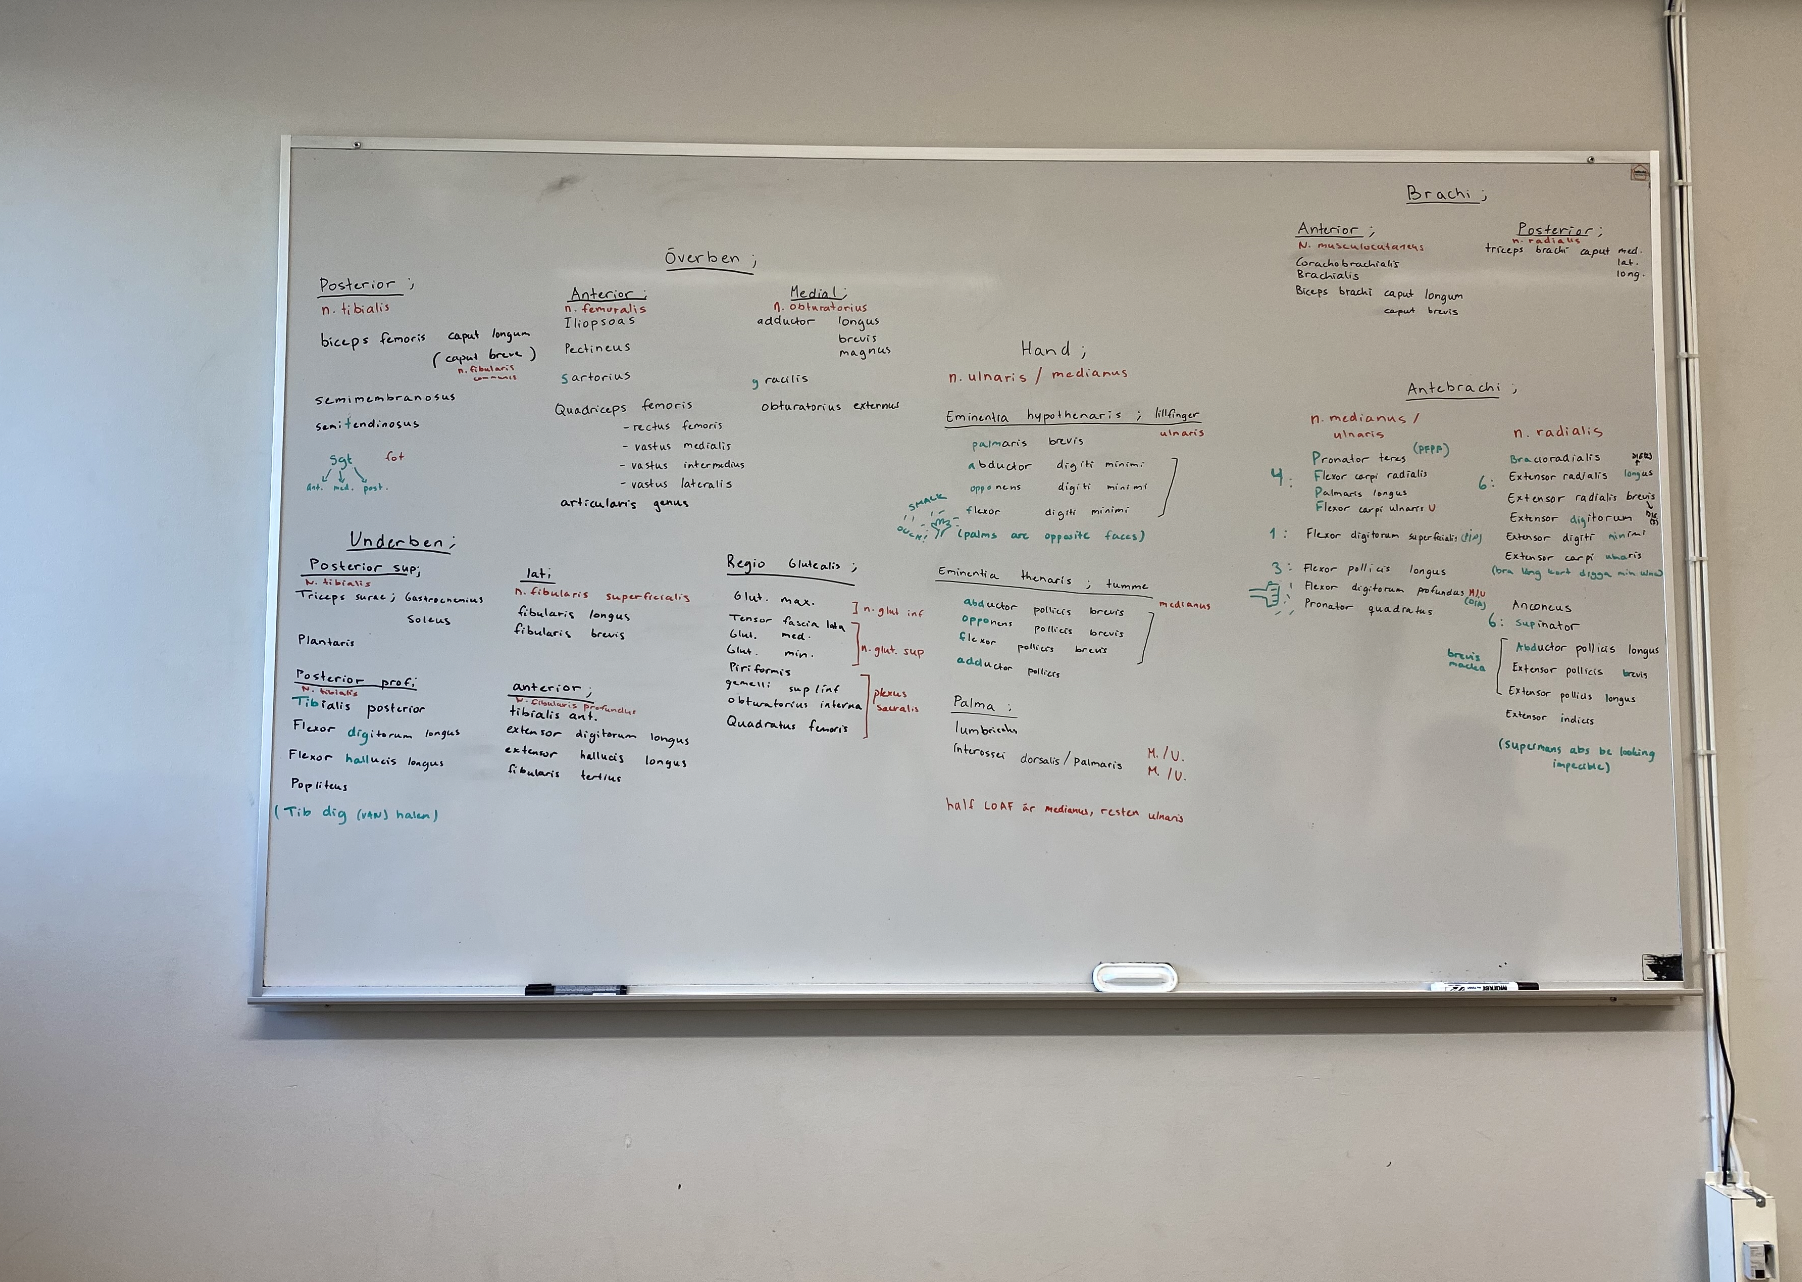 Överben ;
Posterior ;
n. tibialis
biceps femoris caput longum
(caput breve)
n. fibularis
communis
semimembranosus
semitendinosus
Sgt fot
Ant. med. post.
Anterior ;
n. femuralis
Iliopsoas
Pectineus
Sartorius
Quadriceps femoris
- rectus femoris
- vastus medialis
- vastus intermedius
- vastus lateralis
articularis genus
Medial ;
n. obturatorius
adductor longus
brevis
magnus
gracilis
obturatorius externus
Underben ;
Posterior sup;
N. tibialis
Triceps surae ; Gastrocnemius
Soleus
Plantaris
Posterior prof;
N. tibialis
Tibialis posterior
Flexor digitorum longus
Flexor hallucis longus
Popliteus
(Tib dig (VAN) halen)
lat;
n. fibularis superficialis
fibularis longus
fibularis brevis
anterior ;
N. fibularis profundus
tibialis ant.
extensor digitorum longus
extensor hallucis longus
fibularis tertius
Regio Glutealis ;
Glut. max.
n. glut inf
Tensor fascia lata
Glut. med.
Glut. min.
n. glut. sup
Piriformis
gemelli sup/inf
obturatorius interna
Quadratus femoris
plexus
sacralis
Hand ;
n. ulnaris / medianus
Eminentia hypothenaris ; lillfinger
ulnaris
palmaris brevis
abductor digiti minimi
opponens digiti minimi
flexor digiti minimi
SMACK
OUCH!
(palms are opposite faces)
Eminentia thenaris ; tumme
medianus
abductor pollicis brevis
opponens pollicis brevis
flexor pollicis brevis
adductor pollicis
Palma ;
lumbricalis
Interossei dorsalis/palmaris
M./U.
M./U.
half LOAF är medianus, resten ulnaris
Brachi ;
Anterior ;
N. musculocutaneus
Corachobrachialis
Brachialis
Biceps brachi caput longum
caput brevis
Posterior ;
n. radialis
triceps brachi caput med.
lat.
long.
Antebrachi ;
n. medianus /
ulnaris
(PFPF)
4:
Pronator teres
Flexor carpi radialis
Palmaris longus
Flexor carpi ulnaris U
1: Flexor digitorum superfcialis (PIP)
3: Flexor pollicis longus
Flexor digitorum profundus M/U
(DIP)
Pronator quadratus
n. radialis
6:
Bracioradialis
Extensor radialis longus
Extensor radialis brevis
Extensor digitorum
Extensor digiti minimi
Extensor carpi ulnaris
(bra lång kort digga min ulna)
Anconeus
6: Supinator
brevis
macka
Abductor pollicis longus
Extensor pollicis brevis
Extensor pollicis longus
Extensor indicis
(supermans abs be looking
impecible)